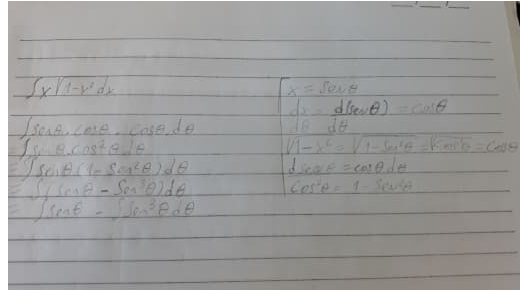 ∫x√1-x² dx
∫senθ.cosθ.cosθ.dθ
∫senθ.cos²θ dθ
= ∫senθ(1-sen²θ)dθ
= ∫(senθ - sen³θ)dθ
= ∫senθ - ∫sen³θ dθ
x = senθ
dx = d(senθ) = cosθ
dθ dθ
√1-x² = √1-sen²θ = √cos²θ = cosθ
dsenθ = cosθ dθ
cos²θ = 1-sen²θ